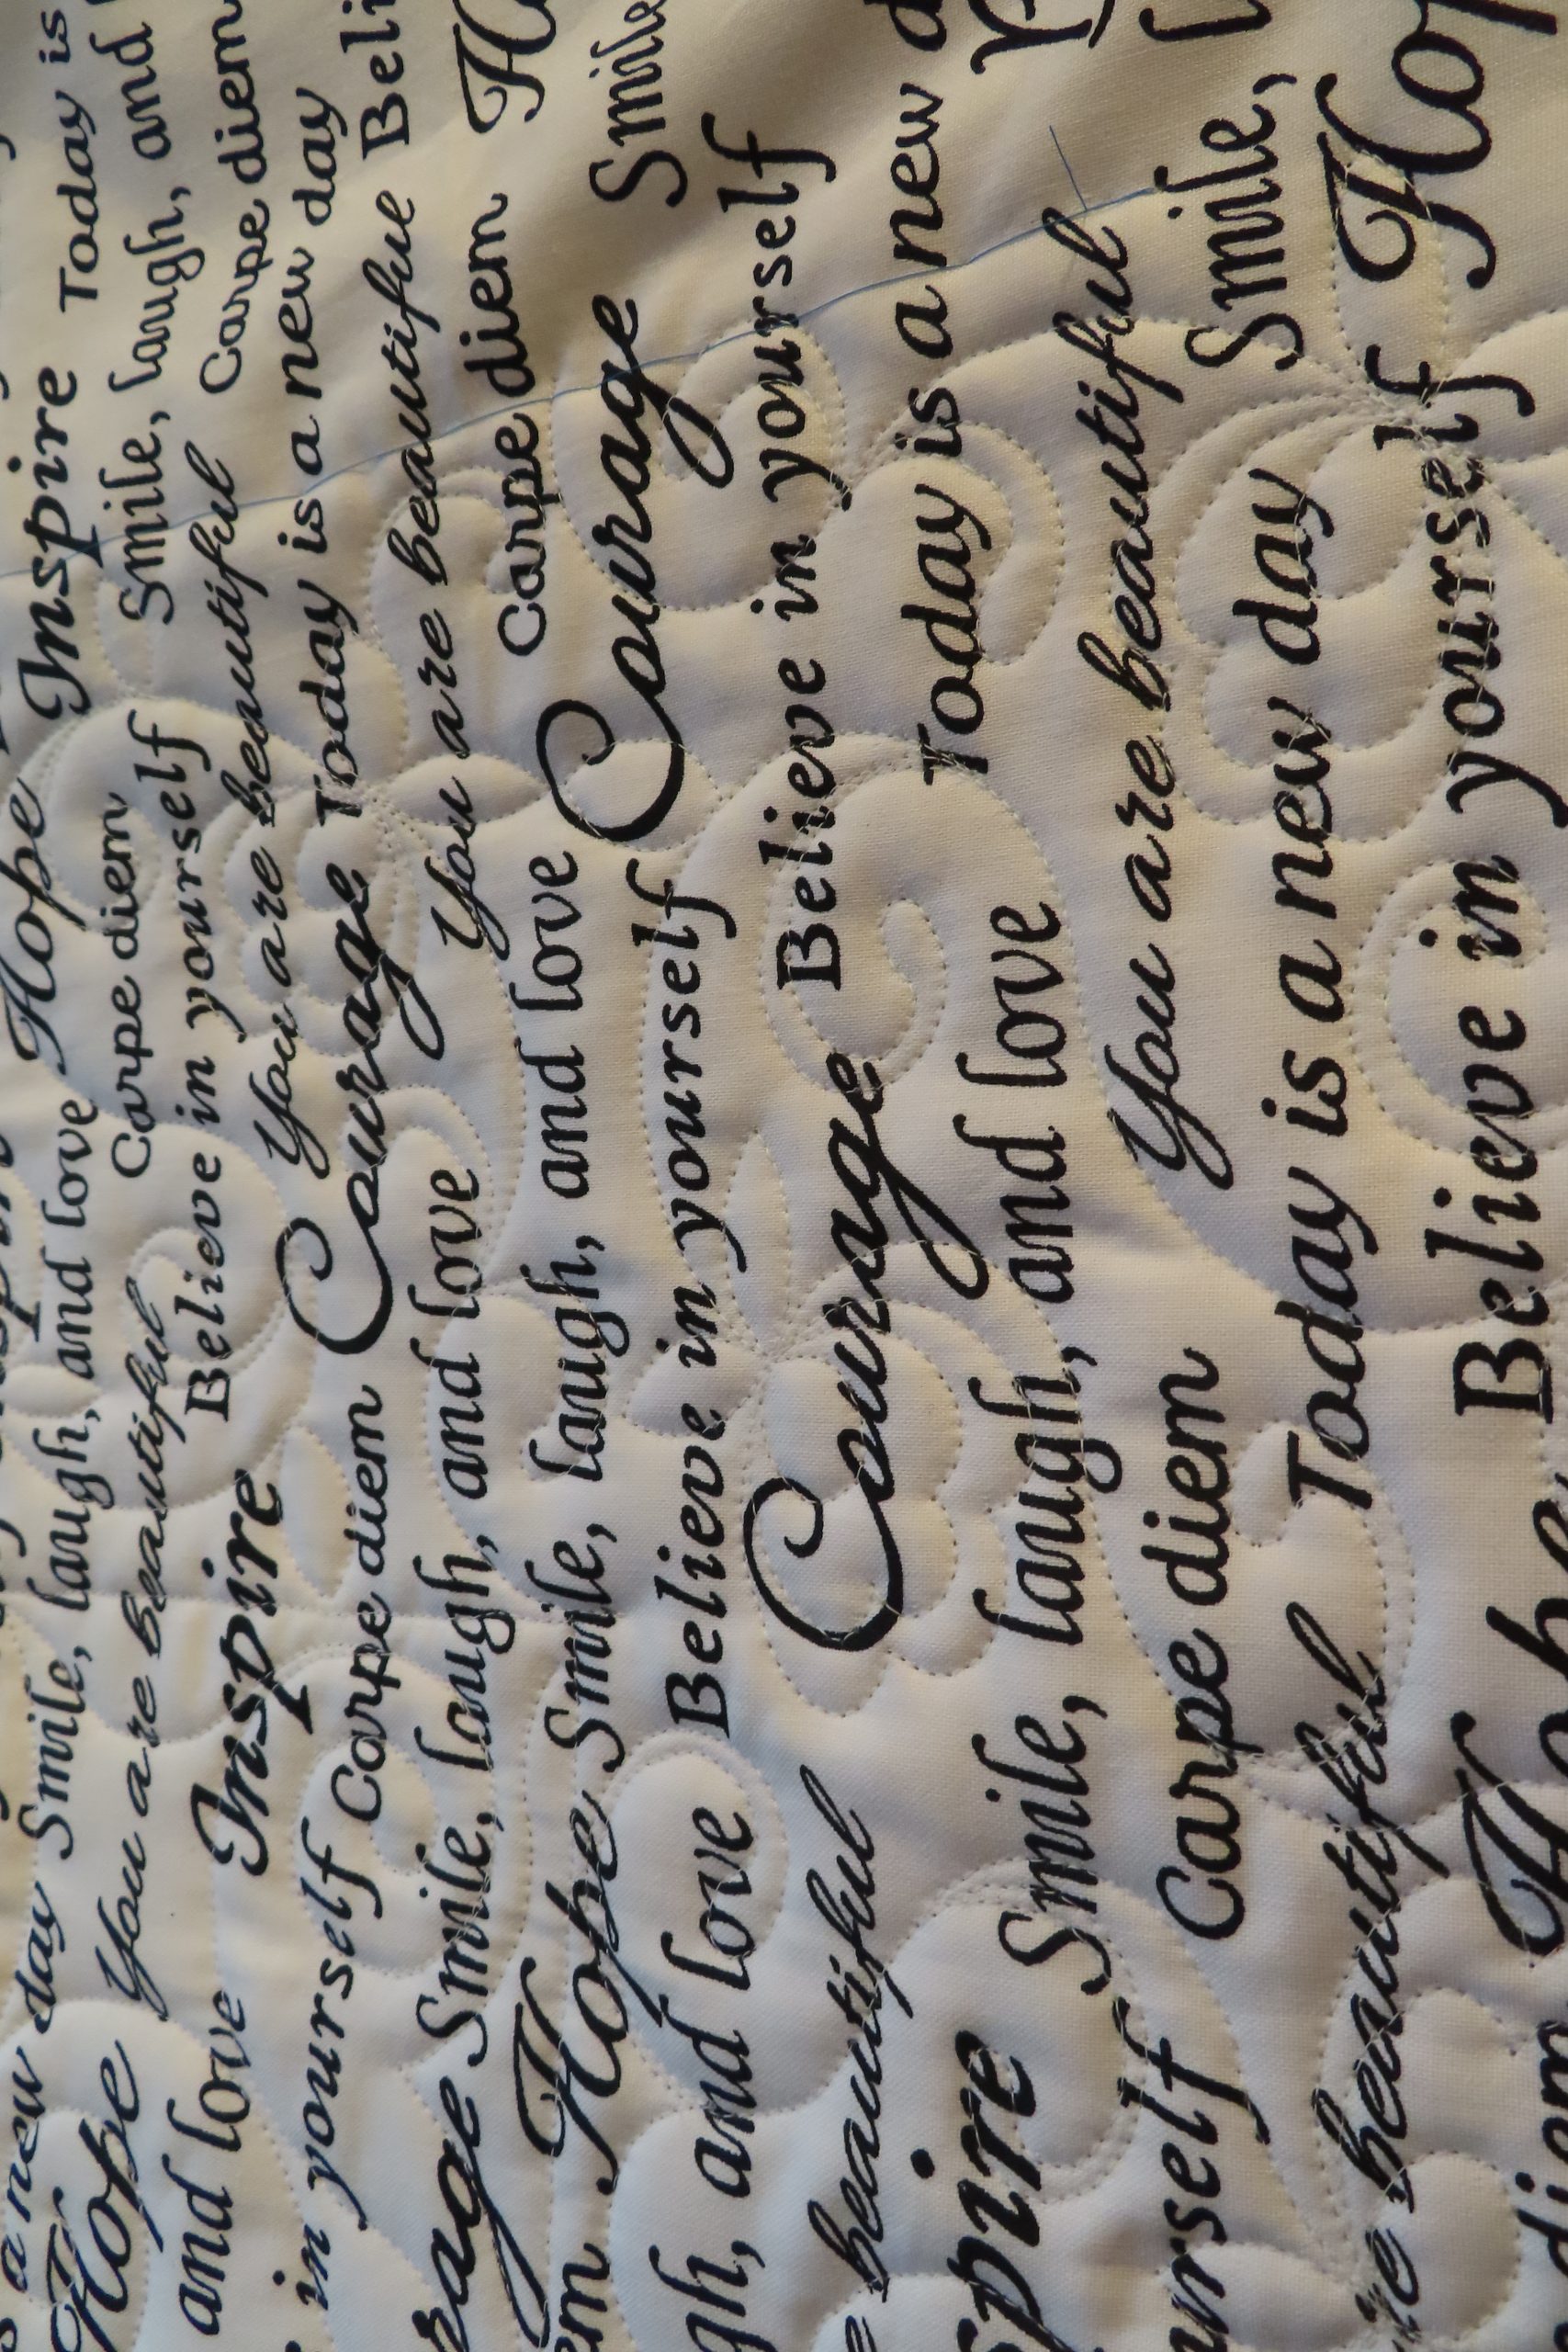 a new day Smile, laugh, and love Hope
Hope You are beautiful Carpe diem Inspire Today is
and love Inspire Believe in yourself Smile, laugh, and
You are beautiful Carpe diem
in yourself Carpe diem Courage Today is a new day
rage Smile, laugh, and love You are beautiful Beli
em Hope Smile, laugh, and love Carpe diem
gh, and love Believe in yourself Courage Smile
beautiful Courage Believe in yourself
spire Smile, laugh, and love Today is a new d
urself Carpe diem You are beautiful Smile,
beautiful Today is a new day Hop
diem Hope Believe in yourself